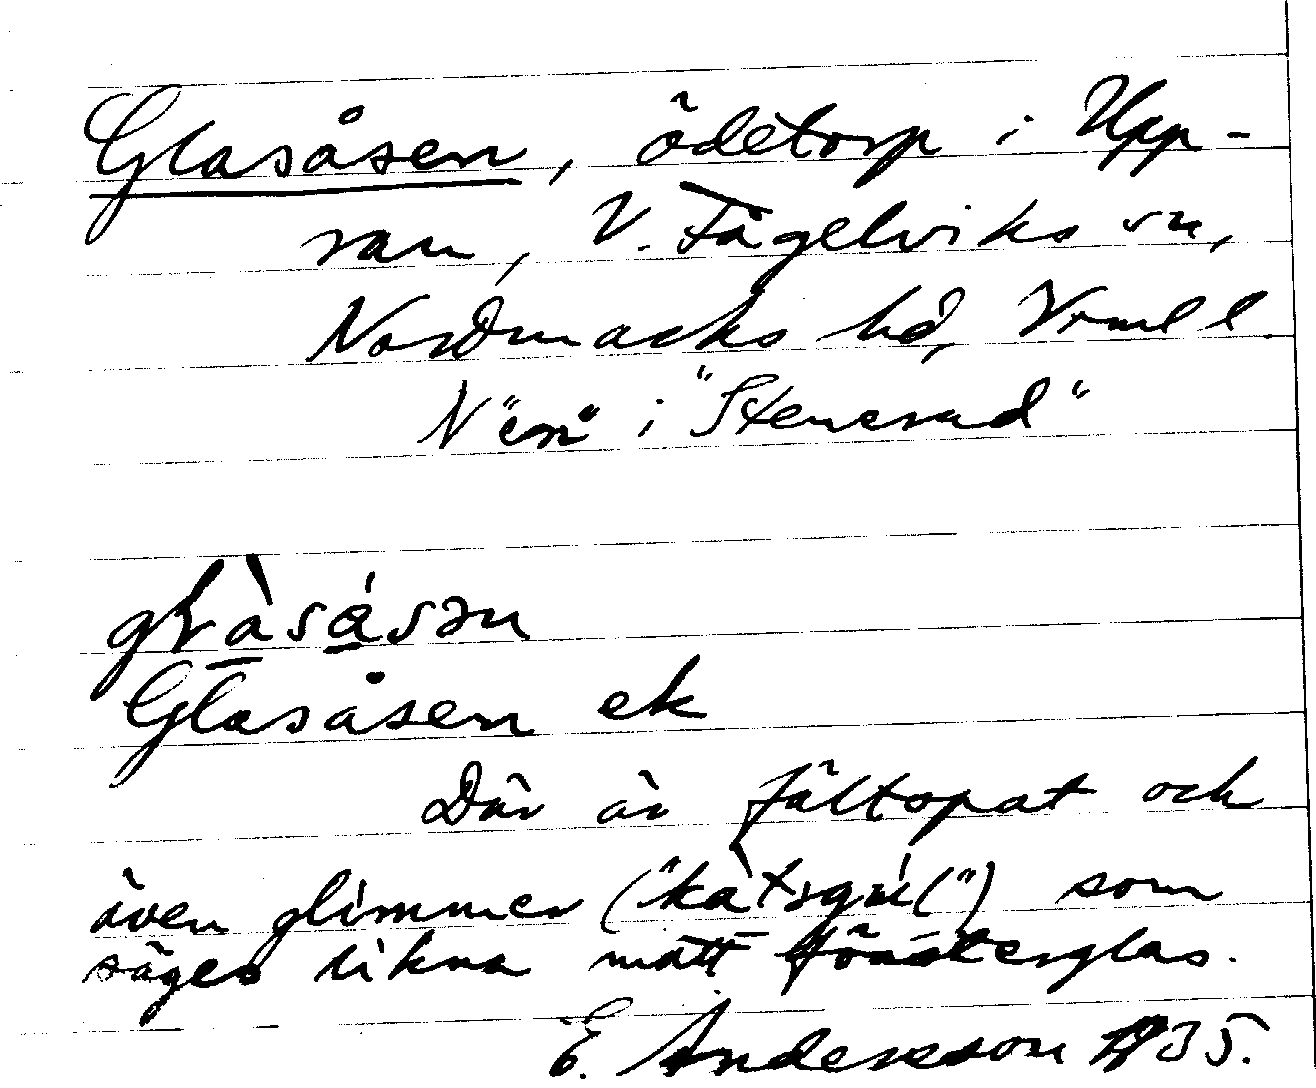 Glasåsen, ödetorp i Upp-
ram, V. Fågelviks sn,
Nordmarks hd, Vrml l.
N "en" i "Stenerud"
glàsásən
Glasåsen ek
Där är fältspat och
även glimmer ("kàtsgúl") som
säges likna matt fönsterglas.
E. Andersson 1935.